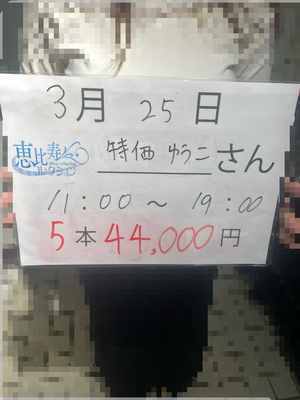 3月 25日
恵比寿 コレクション 特価 ゆうこ さん
11:00 ~ 19:00
5本 44,000円